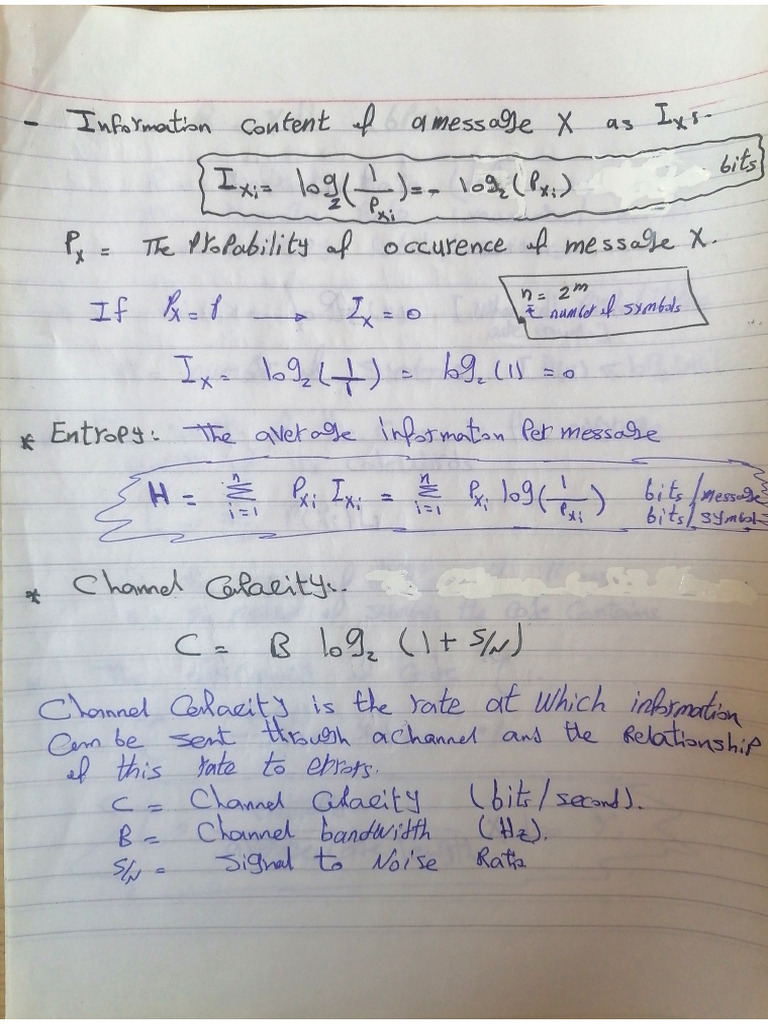 - Information content of a message X as Ixs.
I_{xi} = log_2(1/P_{xi}) = - log_2(P_{xi}) bits
P_x = The Propability of occurence of message X.
If P_x = 1 → I_x = 0
n = 2^m
number of symbols
I_x = log_2(1/1) = log_2(1) = 0
* Entropy: The average information Per message
H = Σ_{i=1}^{n} P_{xi} I_{xi} = Σ_{i=1}^{n} P_{xi} log(1/P_{xi}) bits/message
bits/symbol
* Channel Capacity:.
C = B log_2 (1 + S/N)
Channel Capacity is the rate at which information
Can be sent through a channel and the Relationship
of this rate to errors.
C = Channel Capacity (bits/second).
B = Channel bandwidth (Hz).
S/N = Signal to Noise Ratio